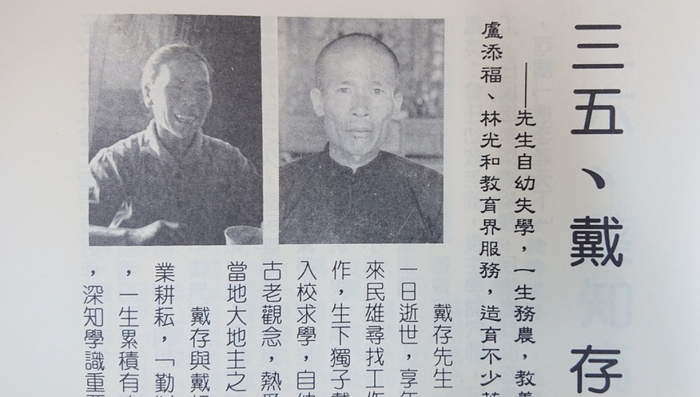 三五、戴 存
——先生自幼失學，一生務農，教養
盧添福、林光和教育界服務，造育不少英
戴存先生
一日逝世，享年
來民雄尋找工作
作，生下獨子戴
入校求學，自幼
古老觀念，熱愛
當地大地主之
戴存與戴
業耕耘，「勤
，一生累積有
，深知學識重要